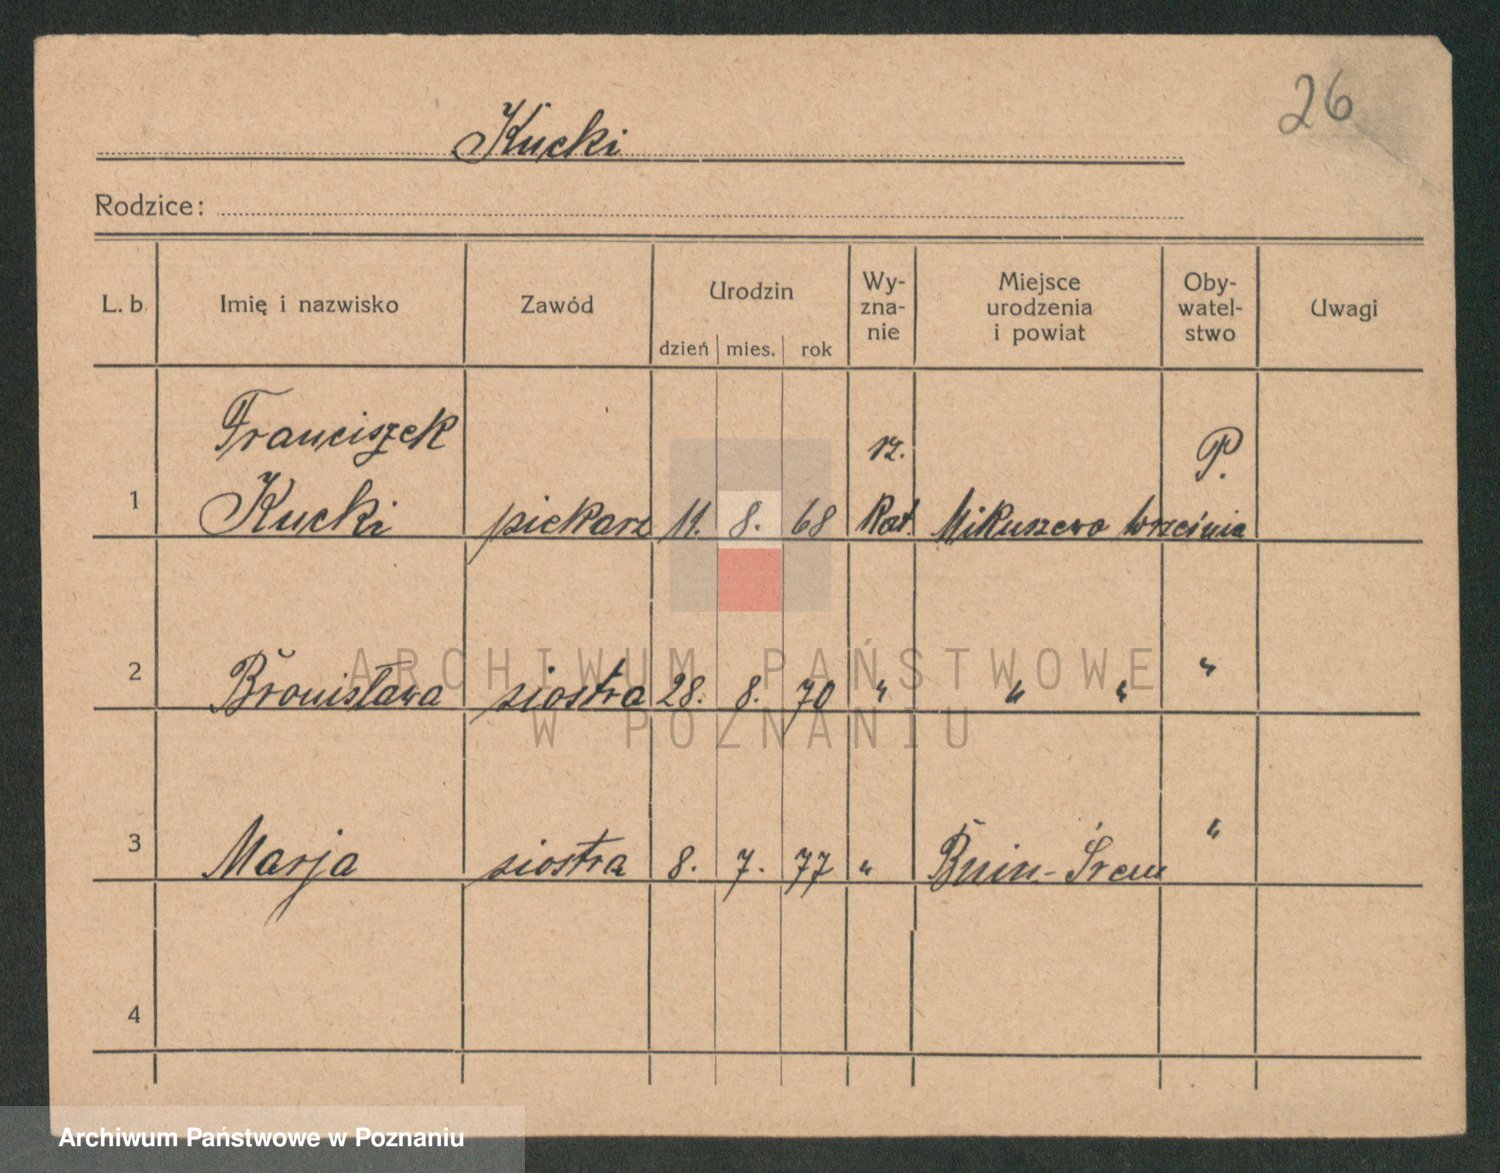 26
Kucki
Rodzice:
L. b. Imię i nazwisko Zawód Urodzin dzień mies. rok Wy-zna-nie Miejsce urodzenia i powiat Oby-watel-stwo Uwagi
Franciszek rz. P.
1 Kucki piekarz 11. 8. 68 Kat. Mikuszewo Września
2 Bronisława siostra 28. 8. 70 " " " "
3 Marja siostra 8. 7. 77 " Bnin - Śrem "
4
ARCHIWUM PAŃSTWOWE
W POZNANIU
Archiwum Państwowe w Poznaniu